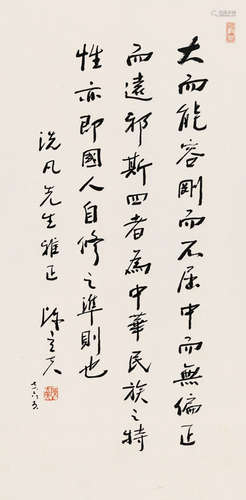 大而能容剛而不屈中而無偏正
而遠邪斯四者為中華民族之特
性亦即國人自修之準則也
洗凡先生雅正 陳立夫